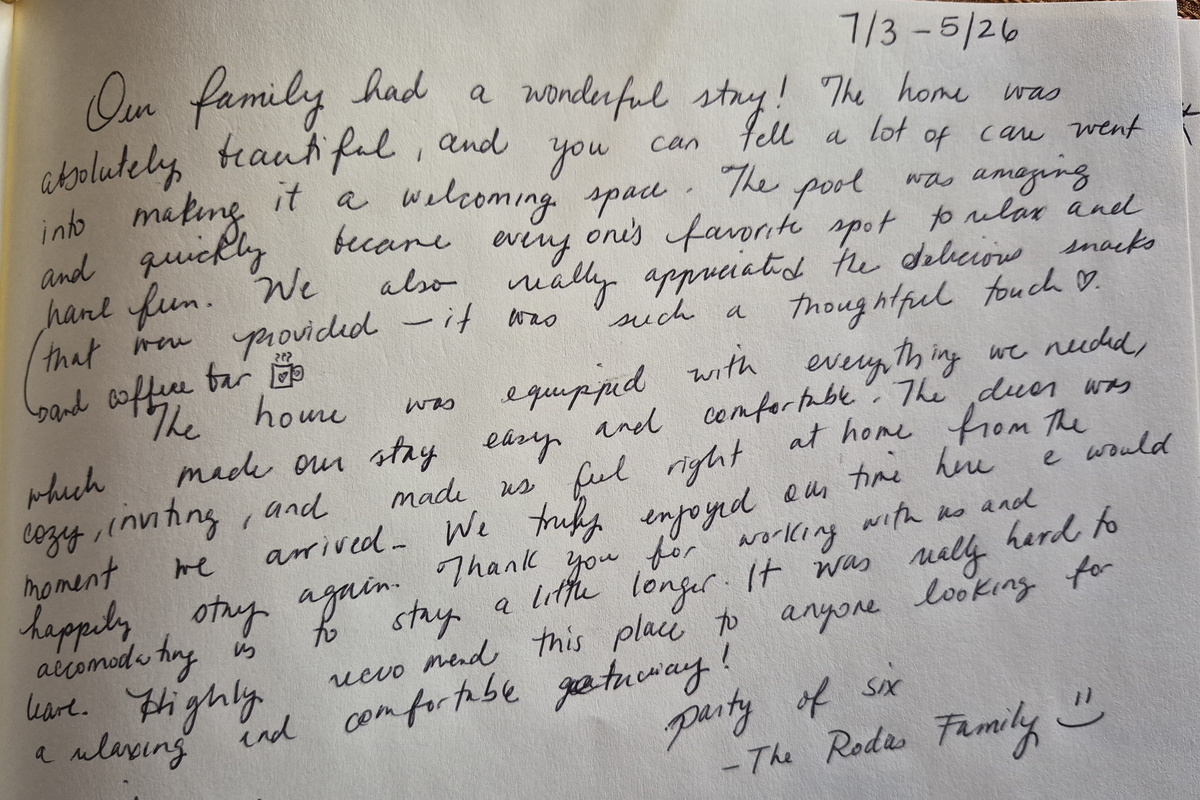 7/3 - 5/26
Our family had a wonderful stay! The home was
absolutely beautiful, and you can tell a lot of care went
into making it a welcoming space. The pool was amazing
and quickly became everyone's favorite spot to relax and
have fun. We also really appreciated the delicious snacks
(that were provided — it was such a thoughtful touch ♡.
and coffee bar
The house was equipped with everything we needed,
which made our stay easy and comfortable. The decor was
cozy, inviting, and made us feel right at home from the
moment we arrived. We truly enjoyed our time here & would
happily stay again. Thank you for working with us and
accomodating us to stay a little longer. It was really hard to
leave. Highly recommend this place to anyone looking for
a relaxing and comfortable getaway!
party of six
- The Rodas Family